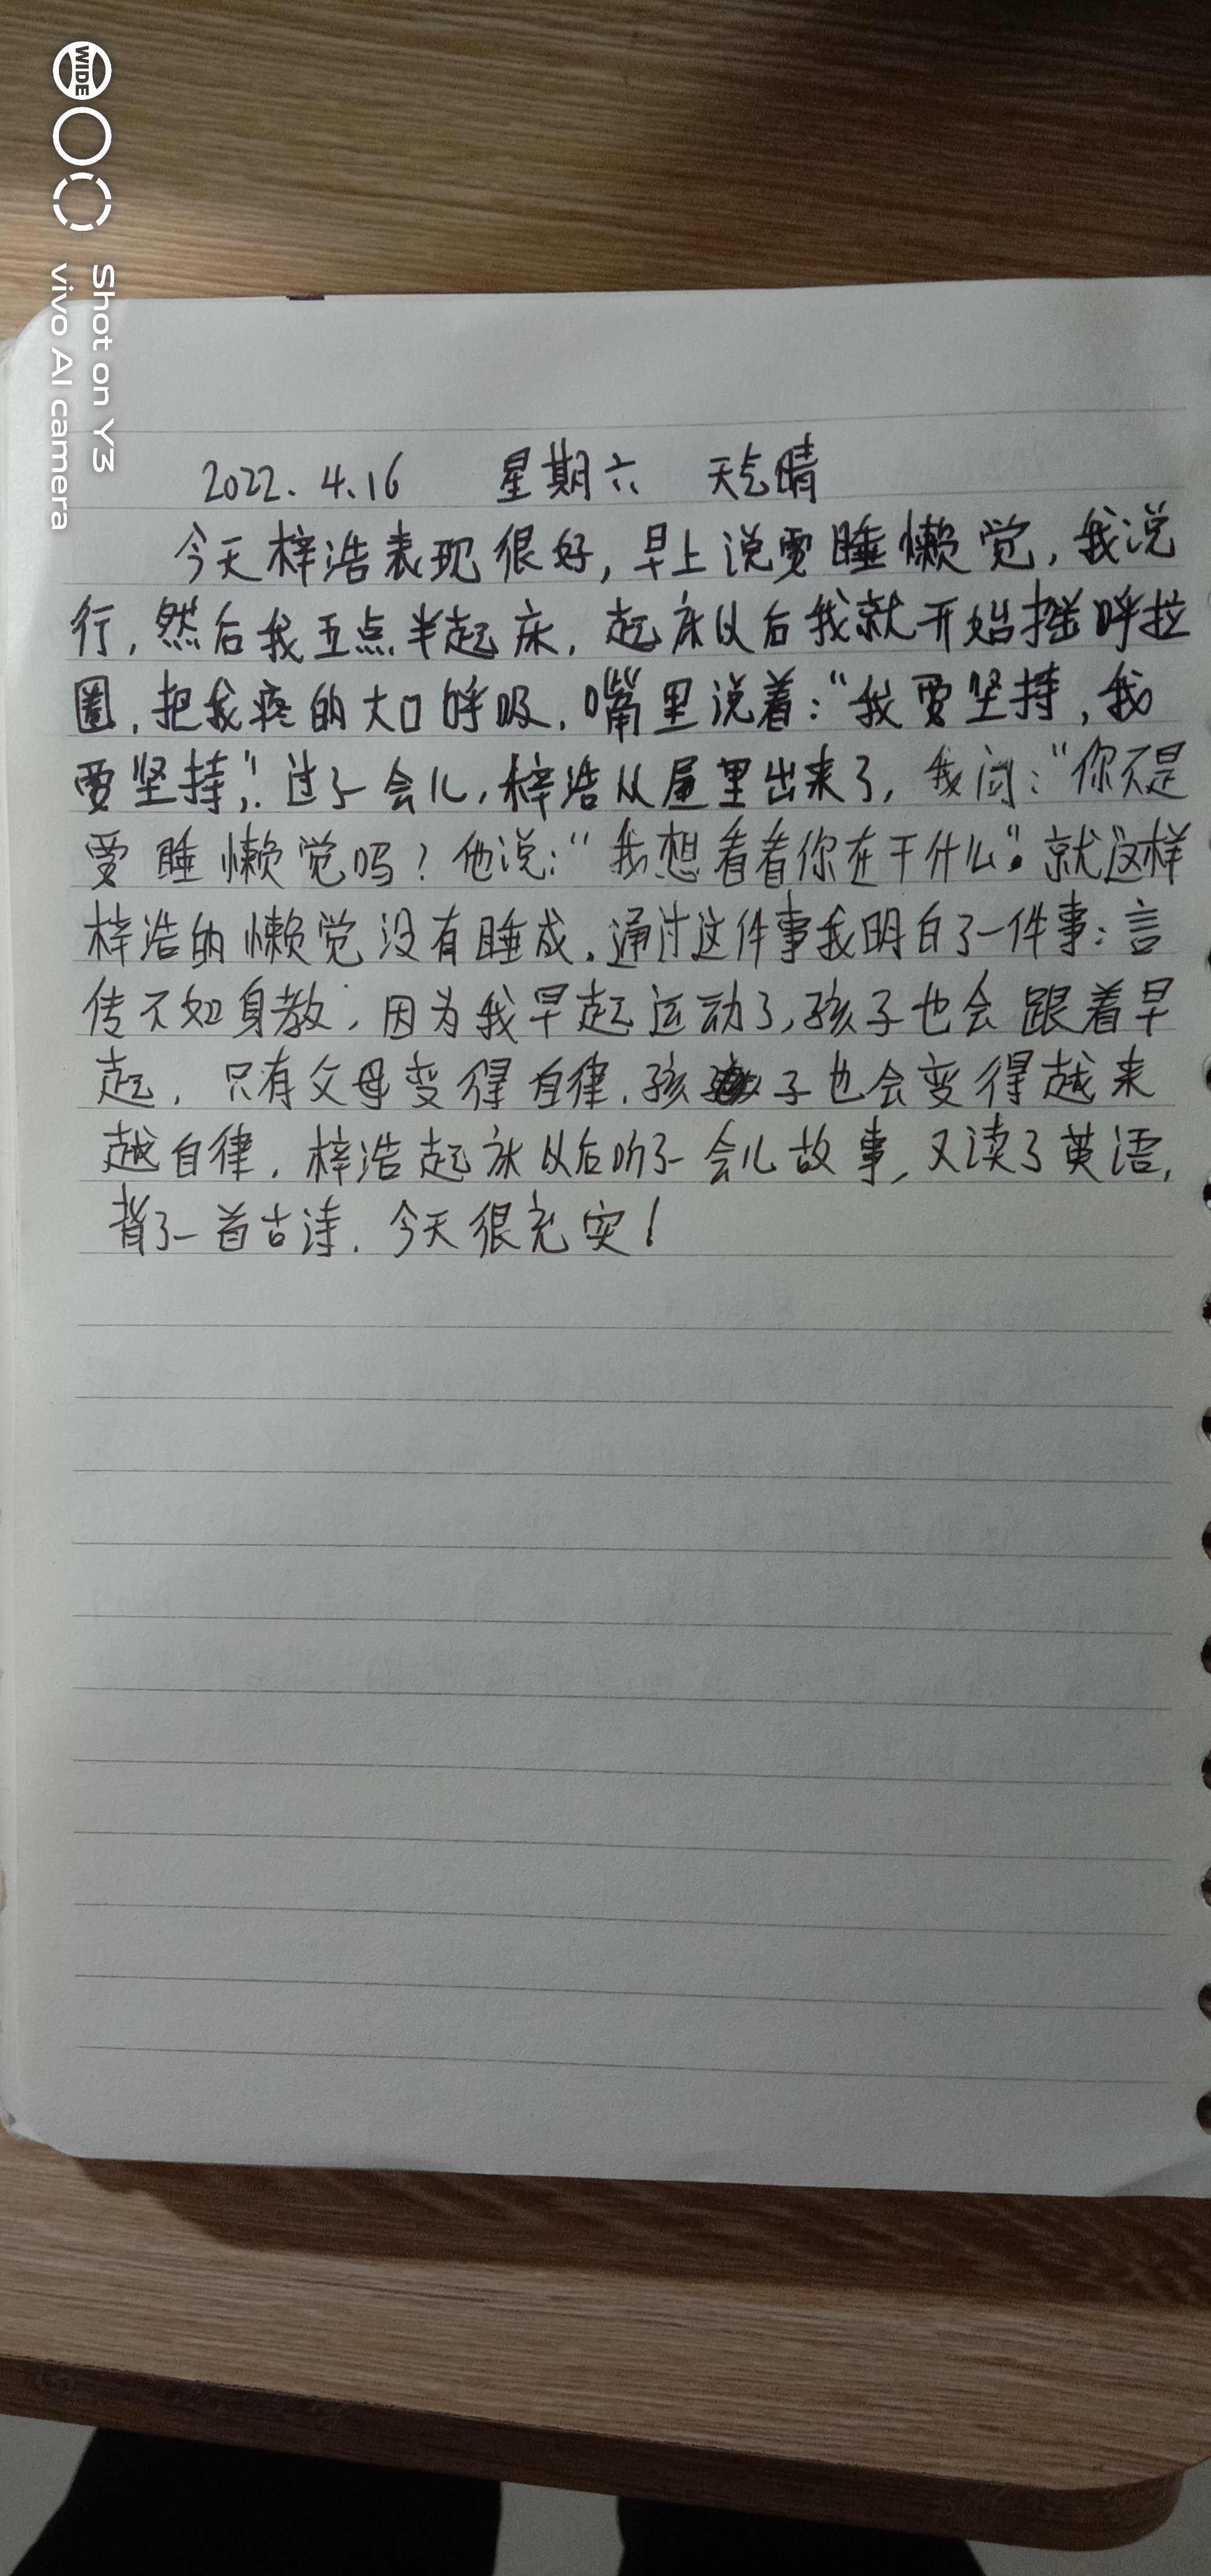 WIDE
Shot on Y3
vivo AI camera
2022.4.16 星期六 天气晴
今天梓浩表现很好,早上说要睡懒觉,我说
行,然后我五点半起床,起床以后我就开始摇呼拉
圈,把我疼的大口呼吸,嘴里说着:“我要坚持,我
要坚持”,过了一会儿,梓浩从屋里出来了,我问:“你不是
要睡懒觉吗?他说:“我想看看你在干什么”。就这样
梓浩的懒觉没有睡成,通过这件事我明白了一件事:言
传不如身教,因为我早起运动了,孩子也会跟着早
起,只有父母变得自律,孩子也会变得越来
越自律,梓浩起床以后听了一会儿故事,又读了英语,
背了一首古诗,今天很充实!